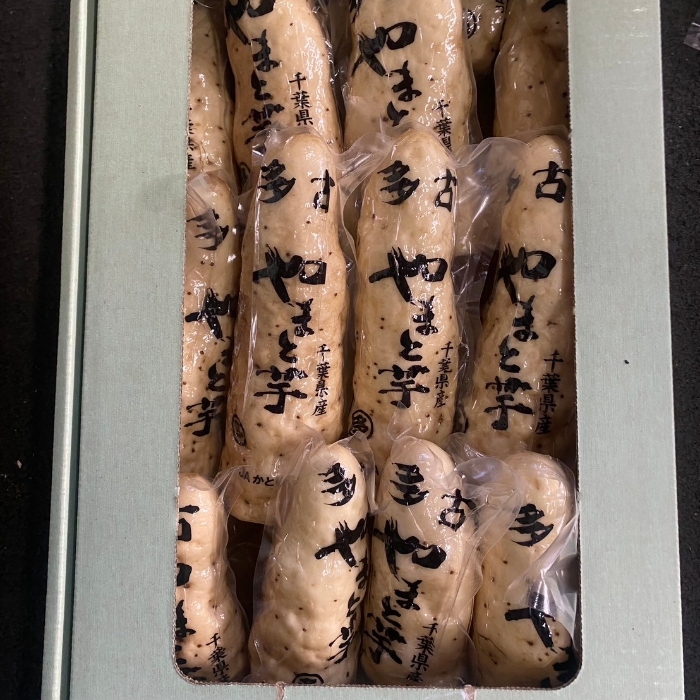 やまと芋
千葉県
やまと
千葉県
県産
多古
やまと芋
千葉県産
多古
やまと芋
千葉県産
多
古
やまと芋
千葉県産
多
やまと芋
JAかと
多
やまと芋
多古
やまと芋
千葉県産
多
や
古
や
千葉県産